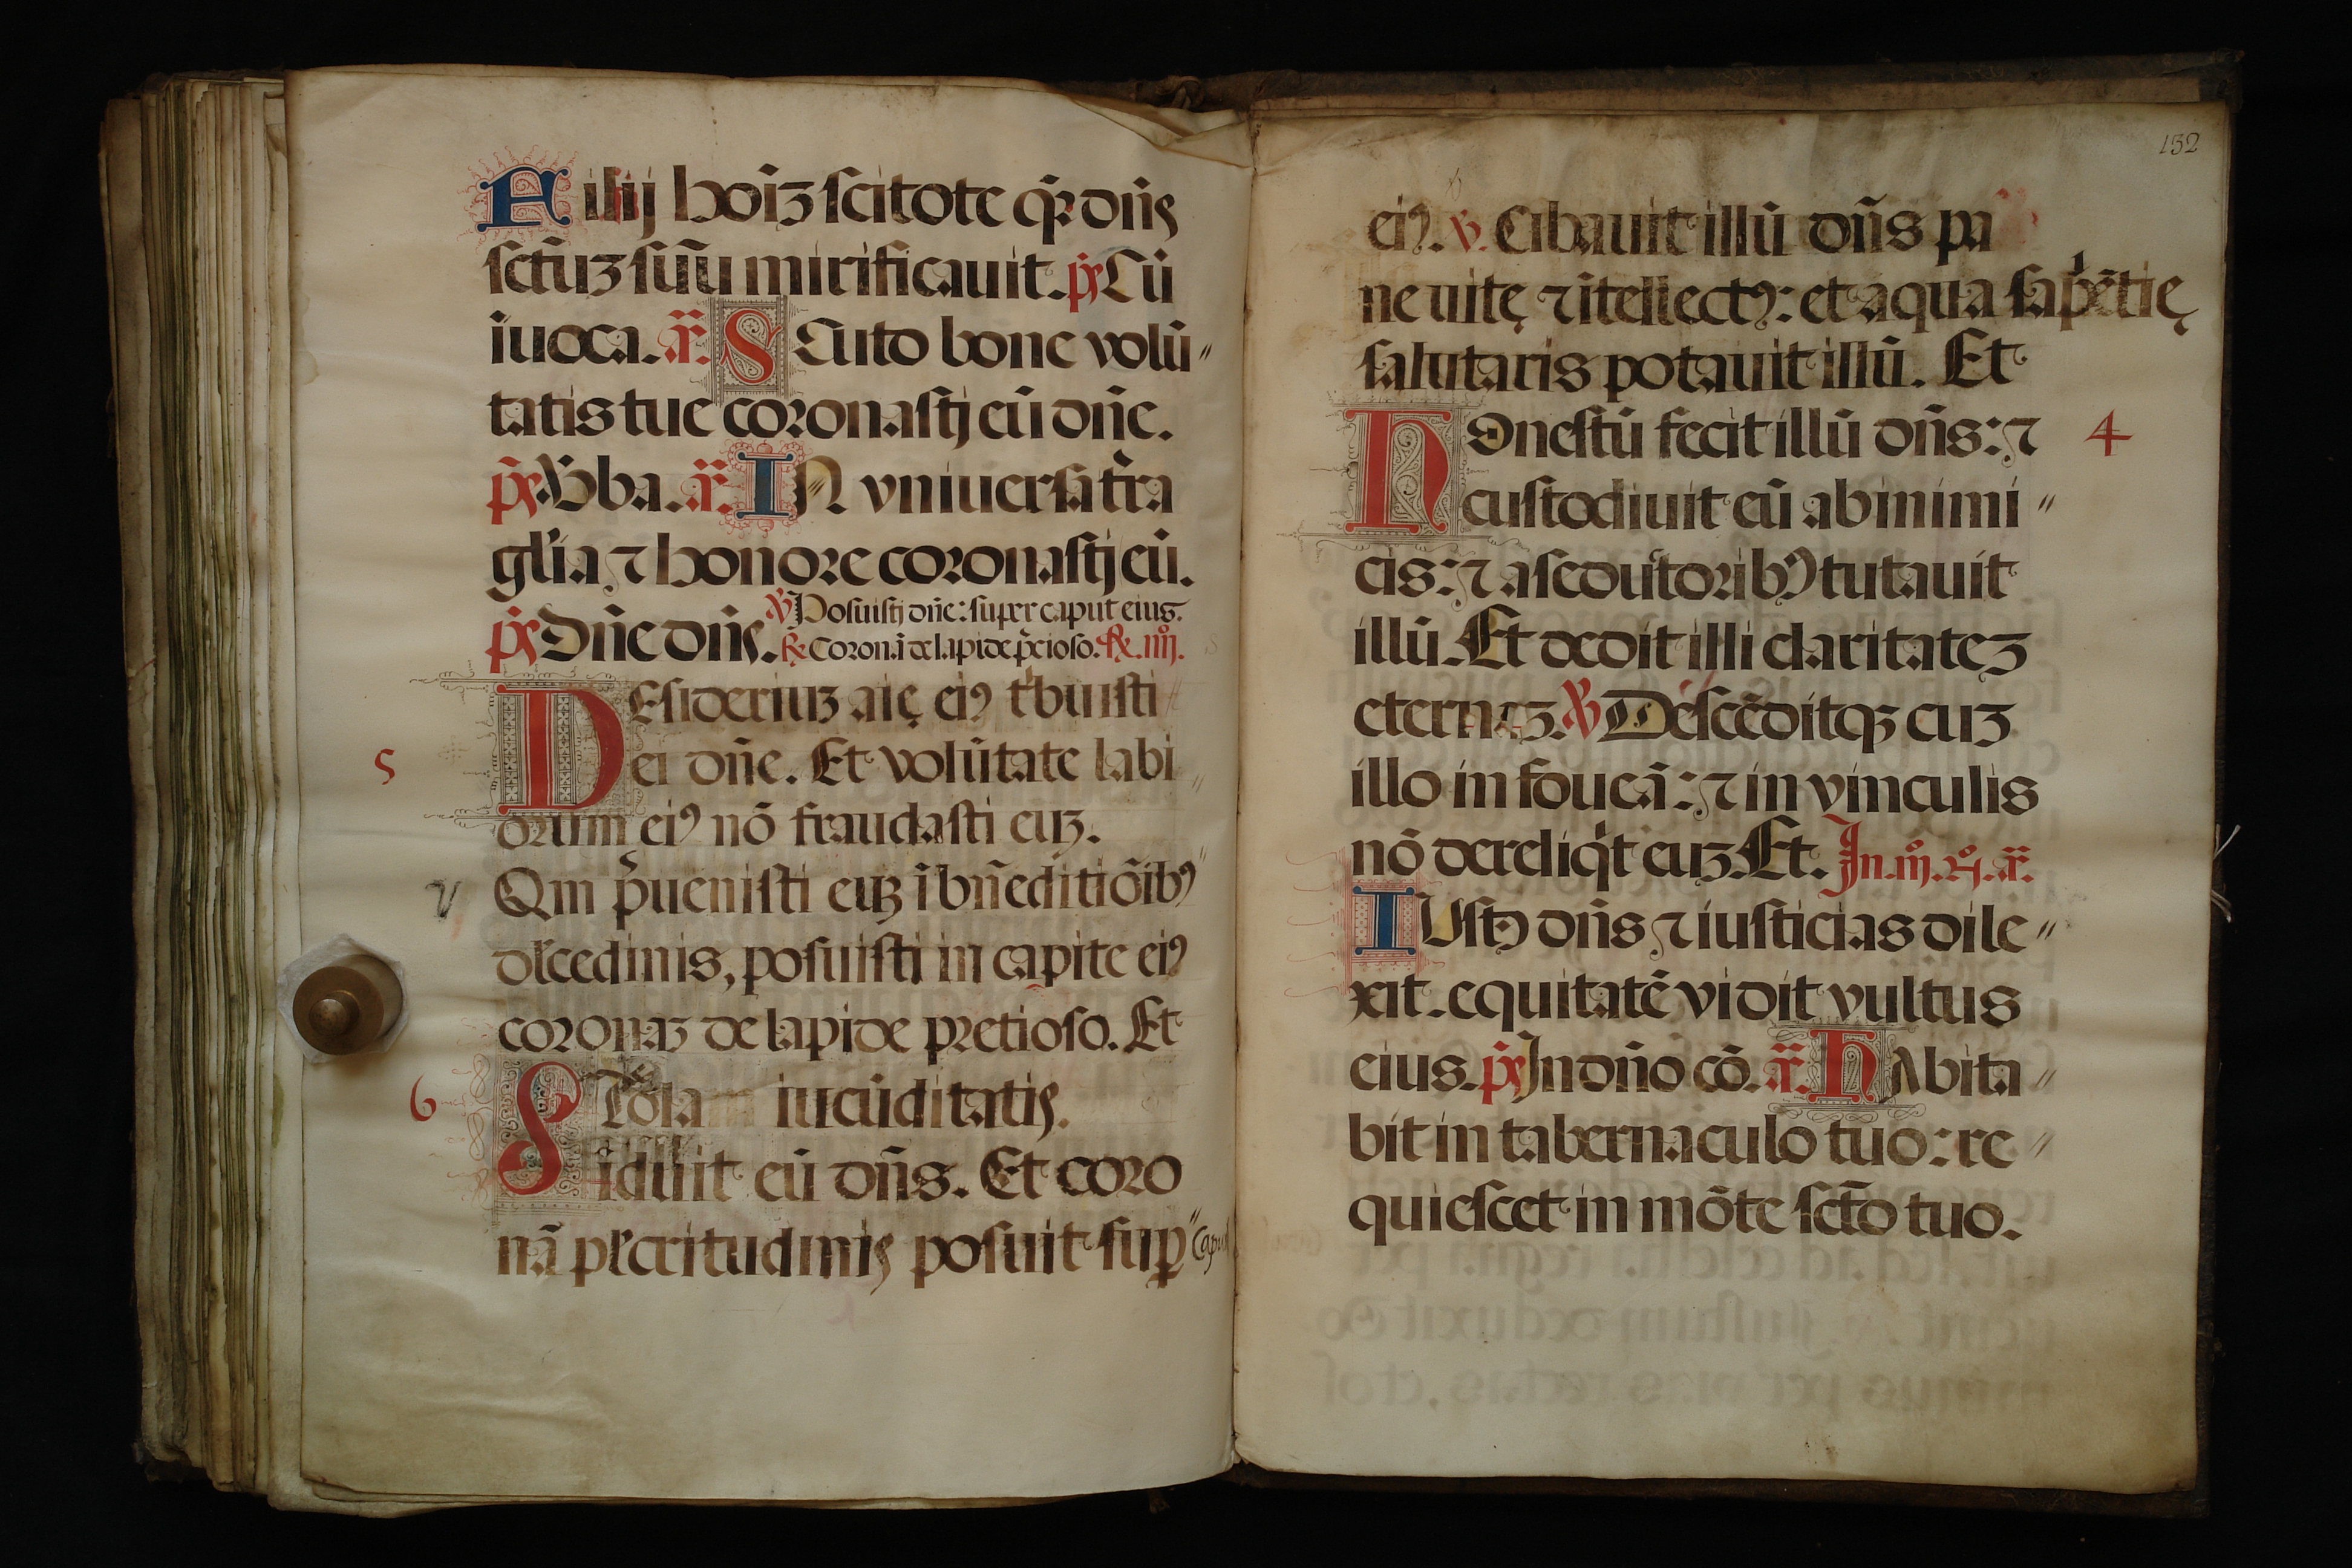 Filij hoīʒ scitote qꝛ dn̄s
sctūʒ suū mirificauit. p̄s Cū
iuoca. a. S Cuto bone volū
tatis tue coronastj eū dn̄e.
p̄s Vba. a. IN vniuersa tr̄a
gl'ia ⁊ honore coronastj eū.
℣ Posuistj dn̄e: super caput eius.
p̄s Dn̄e dn̄s. ℟ Coronā de lapide p̄cioso. ℟. iiij.
DEsideriuʒ aīę eiꝰ tⁱbuisti
5 ei dn̄e. Et volūtate labi
orum eiꝰ nō fraudasti euʒ.
V Qm p̄uenisti euʒ ī bn̄editiōibꝰ
dl'cedinis, posuisti in capite eiꝰ
coronaʒ de lapide pretioso. Et
6 STola iucūditatis.
iduit eū dn̄s. Et coro
nā pl'critudinis posuit suꝑ caput
152
eiꝰ. ℣. Cibauit illū dn̄s pa
ne uitę ⁊ itellectꝰ: et aqua sapiētię
salutaris potauit illū. Et
hOnestū fecit illū dn̄s: ⁊ 4
custodiuit eū ab inimi
cis: ⁊ a seductoribꝰ tutauit
illū. Et dedit illi claritateʒ
eternaʒ. ℣ Descēditqʒ cuʒ
illo in foueā: ⁊ in vinculis
nō dereliqⁱt euʒ. Et. In. iij. ū. a.
IUstꝰ dn̄s ⁊ iusticias dile
xit. equitatē vidit vultus
eius. p̄s In dn̄o cō. a. hAbita
bit in tabernaculo tuo: re
quiescet in mōte sctō tuo.